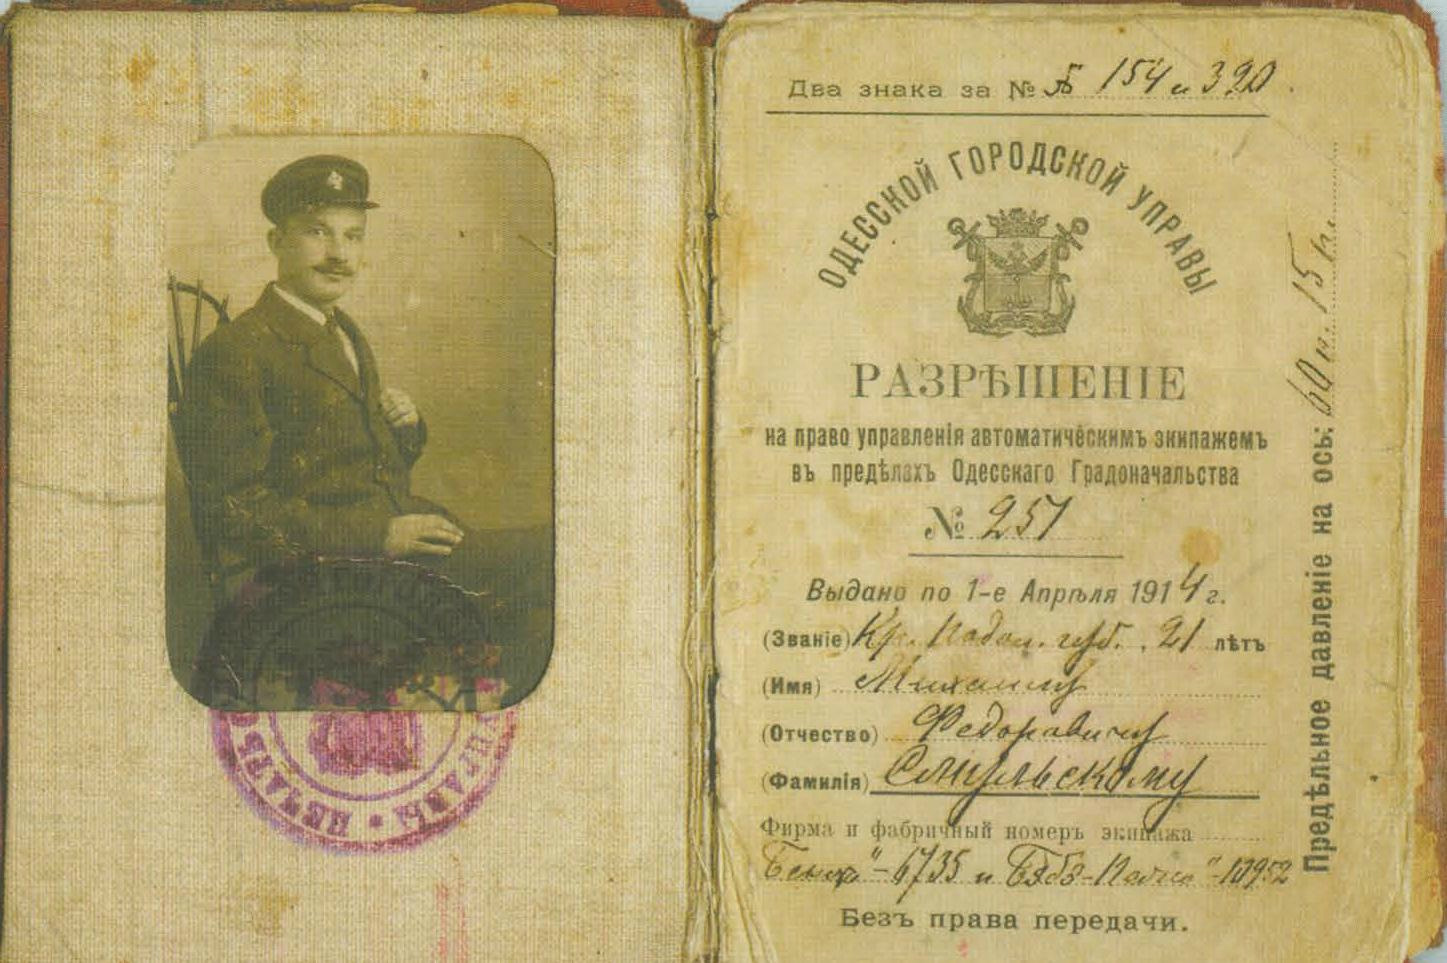 Два знака за № 154 и 390
ОДЕССКОЙ ГОРОДСКОЙ УПРАВЫ
РАЗРѢШЕНІЕ
на право управленія автоматическимъ экипажемъ
въ предѣлахъ Одесскаго Градоначальства
№ 251
Выдано по 1-е Апрѣля 1914 г.
(Званіе) Кр. Подол. губ. 21 лѣтъ
(Имя) Михаилу
(Отчество) Федоровичу
(Фамилія)
Фирма и фабричный номеръ экипажа
"Бенц" - 6735 и - 13952
Безъ права передачи.
Предѣльное давленіе на ось: 60 п. 15
ПЕЧАТЬ УПРАВЫ